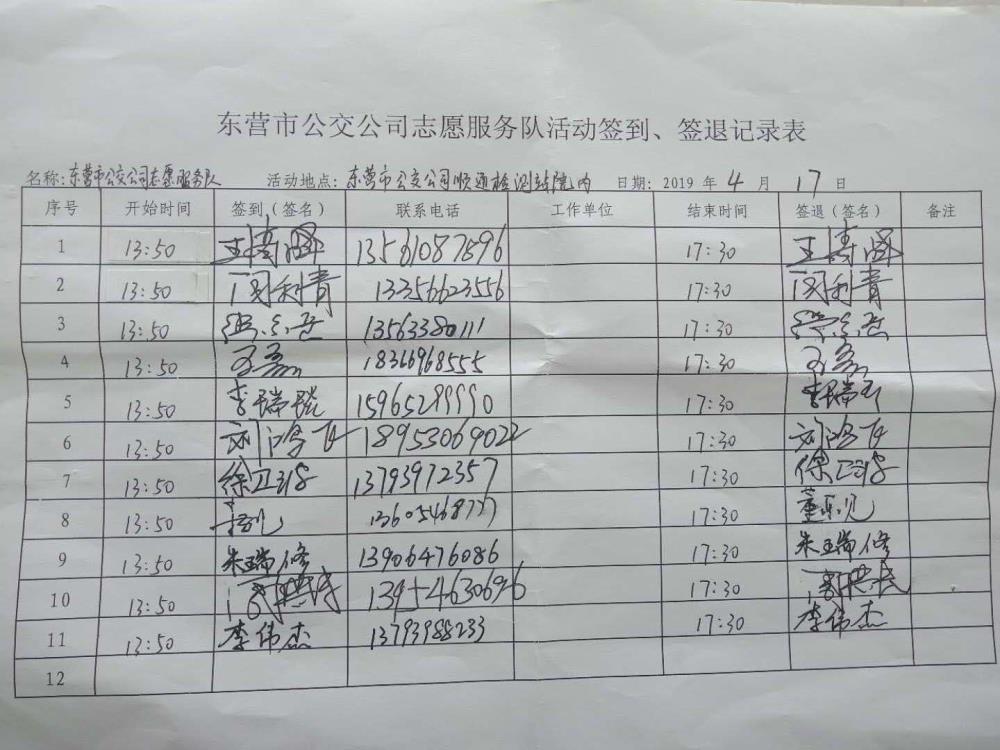 东营市公交公司志愿服务队活动签到、签退记录表
名称:东营市公交公司志愿服务队 活动地点:东营市公交公司顺通检测站院内 日期: 2019 年 4 月 17 日
序号 开始时间 签到(签名) 联系电话 工作单位 结束时间 签退(签名) 备注
1 13:50 13561087596 17:30
2 13:50 闫利青 13356623556 17:30 闫利青
3 13:50 13563380111 17:30
4 13:50 18366968555 17:30
5 13:50 李瑞 15965289990 17:30 李瑞
6 13:50 刘鸿飞 18953069022 17:30 刘鸿飞
7 13:50 徐卫 13793972357 17:30 徐卫
8 13:50 13605468777 17:30 董
9 13:50 朱瑞修 13906476086 17:30 朱瑞修
10 13:50 13954630696 17:30
11 13:50 李伟杰 13793988233 17:30 李伟杰
12